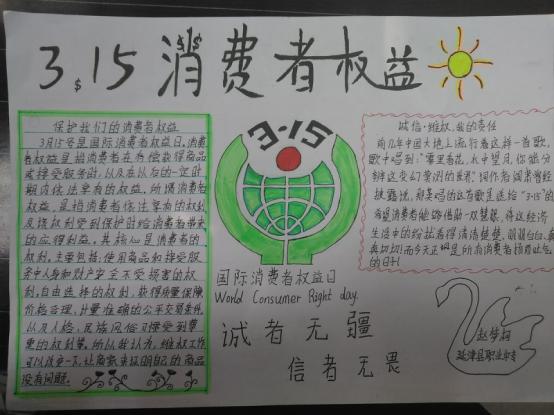 3.15 消费者权益
保护我们的消费者权益
3月15号是国际消费者权益日,消费
者权益是指消费者在有偿获得商品
或接受服务时,以及在以后的一定时
期内依法享有的权益,所谓消费者
权益,是指消费者依法享有的权利
及该权利受到保护时给消费者带来
的应得利益,其核心是消费者的
权利,主要包括:使用商品和接受服
务中人身和财产安全不受损害的权
利,自由选择的权利,获得质量保障
价格合理,计量准确的公平交易条件
以及人格,民族风俗习惯受到尊
重的权利等。所以我认为,维权工作
可以改变一下,让商家来证明自己的商品
没有问题。
3·15
国际消费者权益日
World Consumer Right day.
诚者无疆
信者无畏
诚信·维权,我的责任
前几年中国大地上流行着这样一首歌,
歌中唱到:“雾里看花,水中望月,你能分
辨这变幻莫测的世界”词作者阎肃曾经
披露说,那英唱的这首歌是送给“3·15”的
希望消费者能够借助一双慧眼,将这经济
生活中的纷扰看得清清楚楚,明明白白,真
真切切
的日
赵梦柯
延津县职业中专